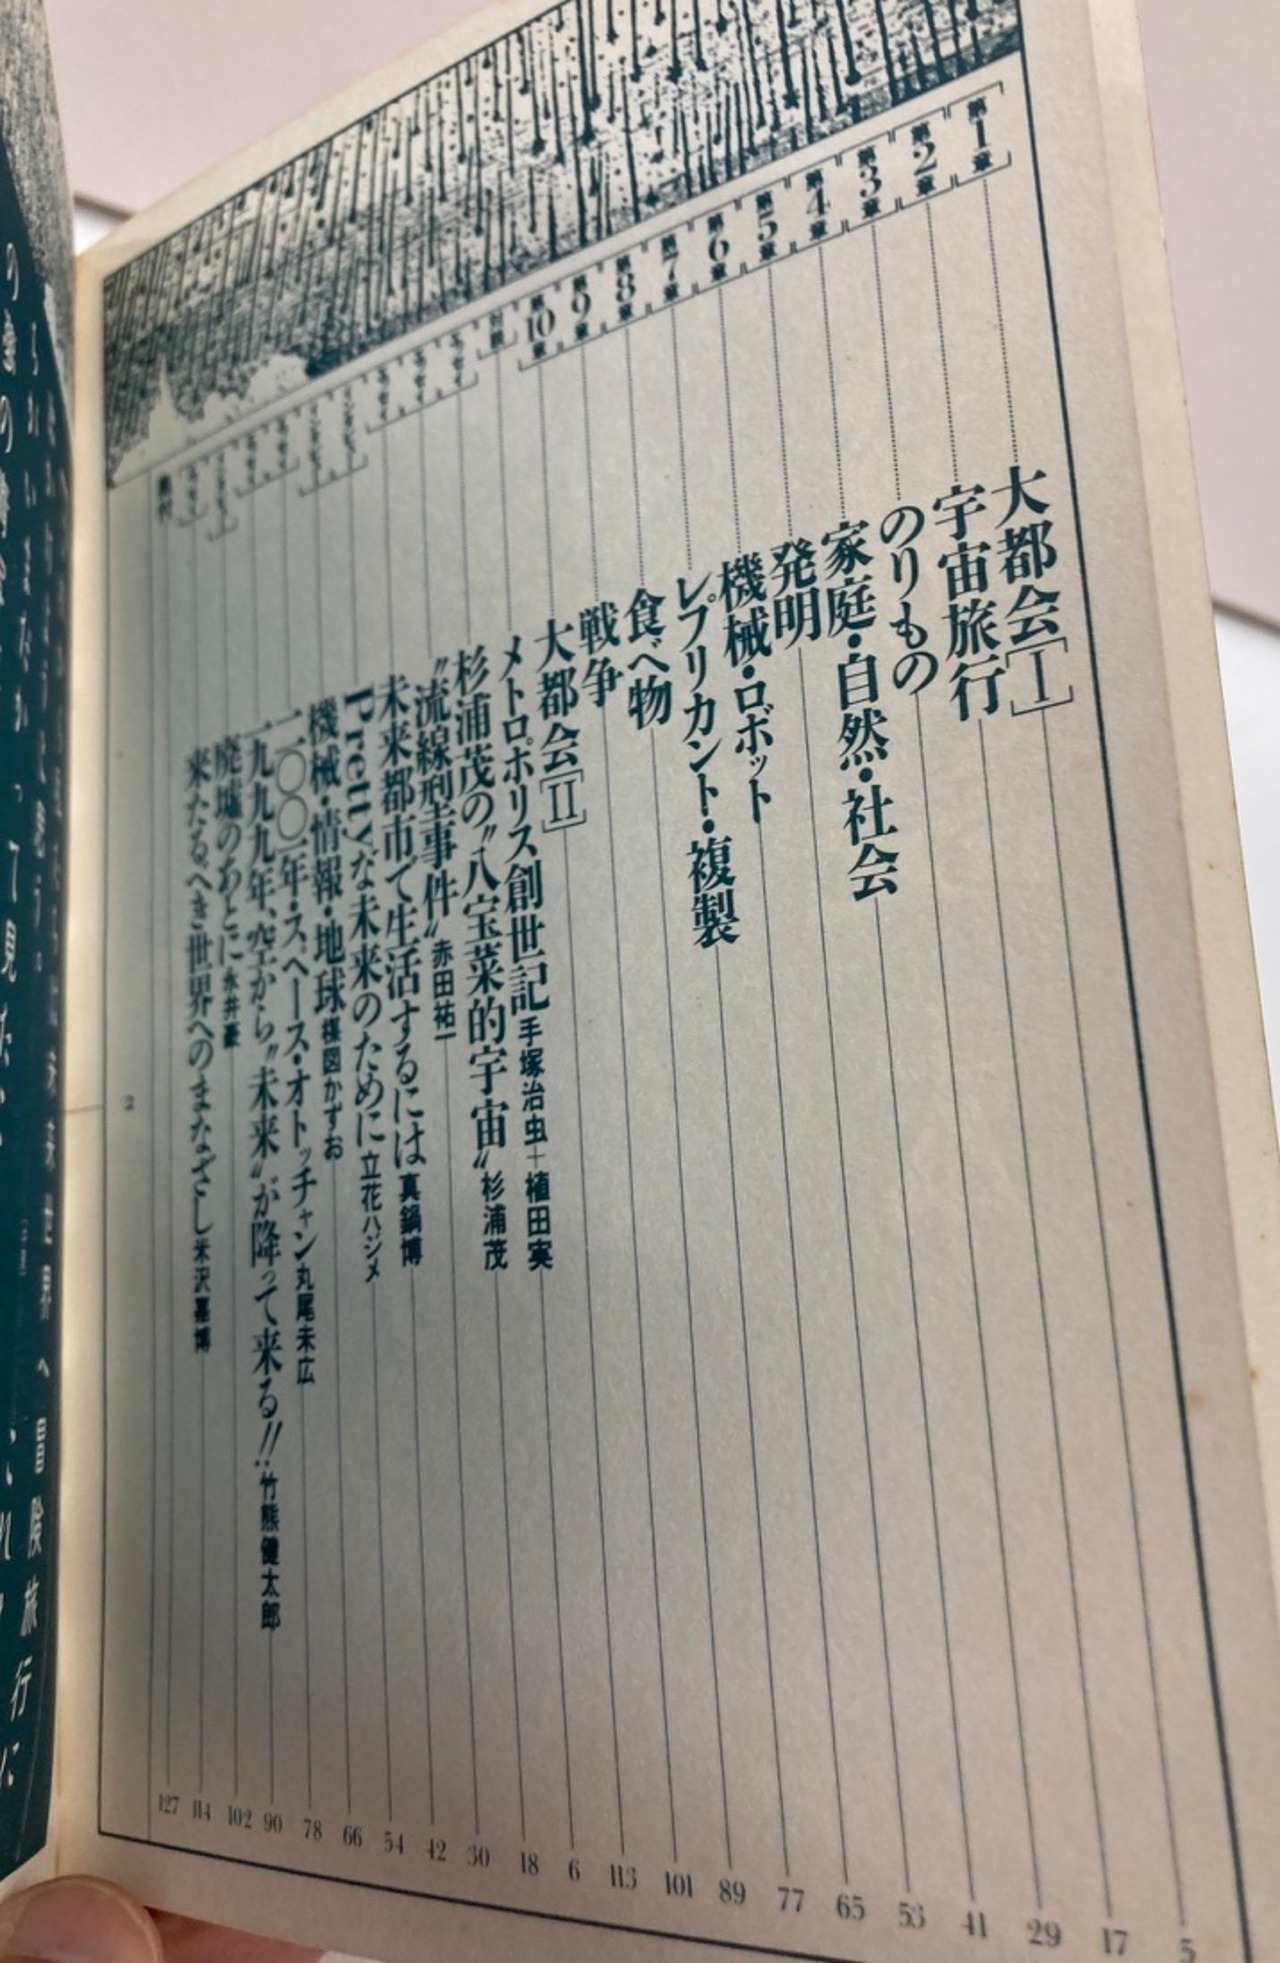 第1章 大都会[I] 5
第2章 宇宙旅行 17
第3章 のりもの 29
第4章 家庭・自然・社会 41
第5章 発明 53
第6章 機械・ロボット 65
第7章 レプリカント・複製 77
第8章 食べ物 89
第9章 戦争 101
第10章 大都会[II] 113
対談 メトロポリス創世記 手塚治虫+植田実 6
エッセイ 杉浦茂の〝八宝菜的宇宙〟 杉浦茂 18
エッセイ 〝流線型事件〟 赤田祐一 30
エッセイ 未来都市で生活するには 真鍋博 42
インタビュー Prettyな未来のために 立花ハジメ 54
インタビュー 機械・情報・地球 楳図かずお 66
エッセイ 二〇〇一年・スペース・オトッチャン 丸尾末広 78
エッセイ 一九九九年、空から〝未来〟が降って来る!! 竹熊健太郎 90
インタビュー 廃墟のあとに 永井豪 102
エッセイ 来たるべき世界へのまなざし 米沢嘉博 114
奥付 127
2
世界へ冒険旅行に